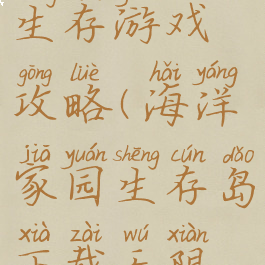 生存游戏
gōng lüè hǎi yáng
攻略(海洋
jiā yuán shēng cún dǎo
家园生存岛
xià zài wú xiàn
下载无限